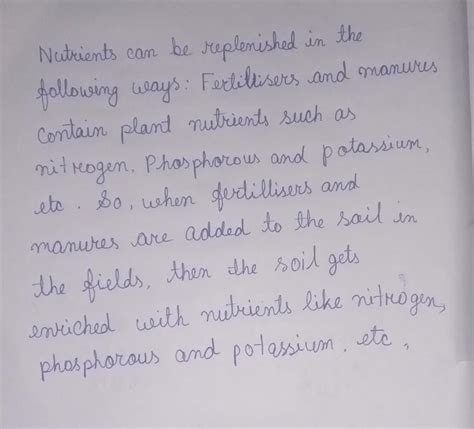 Nutrients can be replenished in the
following ways: Fertillisers and manures
contain plant nutrients such as
nitrogen, Phosphorous and potassium,
etc. So, when fertillisers and
manures are added to the soil in
the fields, then the soil gets
enriched with nutrients like nitrogen,
phosphorous and potassium, etc,